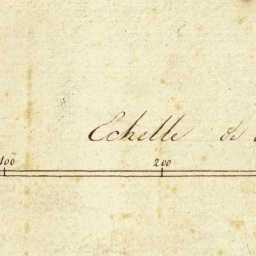 Echelle de
100 200